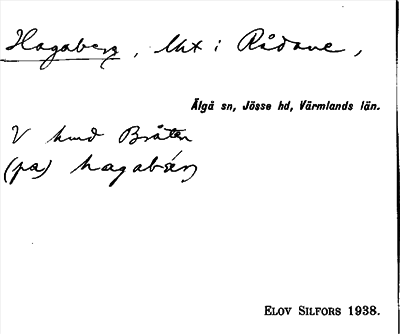 Hagaberg, lht i Rådane,
Älgå sn, Jösse hd, Värmlands län.
V Bråten
(pa) hagabærj
ELOV SILFORS 1938.